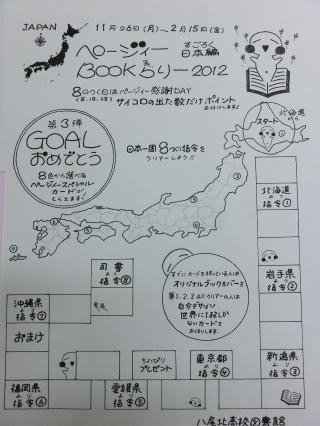 JAPAN
11月26日(月)～2月15日(金)
ページィー
すごろく
日本編
BOOKらりー2012
8のつく日はページィー感謝DAY
(8.18.28)
サイコロの出た数だけポイント
おまけします!
第3弾
GOAL
おめでとう
8色から選べる
ページィースペシャル
カードが
もらえます!
日本一周8つの指令を
クリアーしよう!!
北海道
スタート
北海道
より
指令①
岩手県
より
指令②
新潟県
より
指令③
東京都
より
指令④
ちょっぴり
プレゼント
愛媛県
より
指令⑤
福岡県
より
指令⑥
おまけ
沖縄県
より
指令⑦
司書
より
指令⑧
すでにカードを持っている人は
オリジナルブックカバーを
第1.2.3 allクリアーの人は
自分デザイン
世界に1枚しか
ないカードを
おくります。
八尾北高校図書館